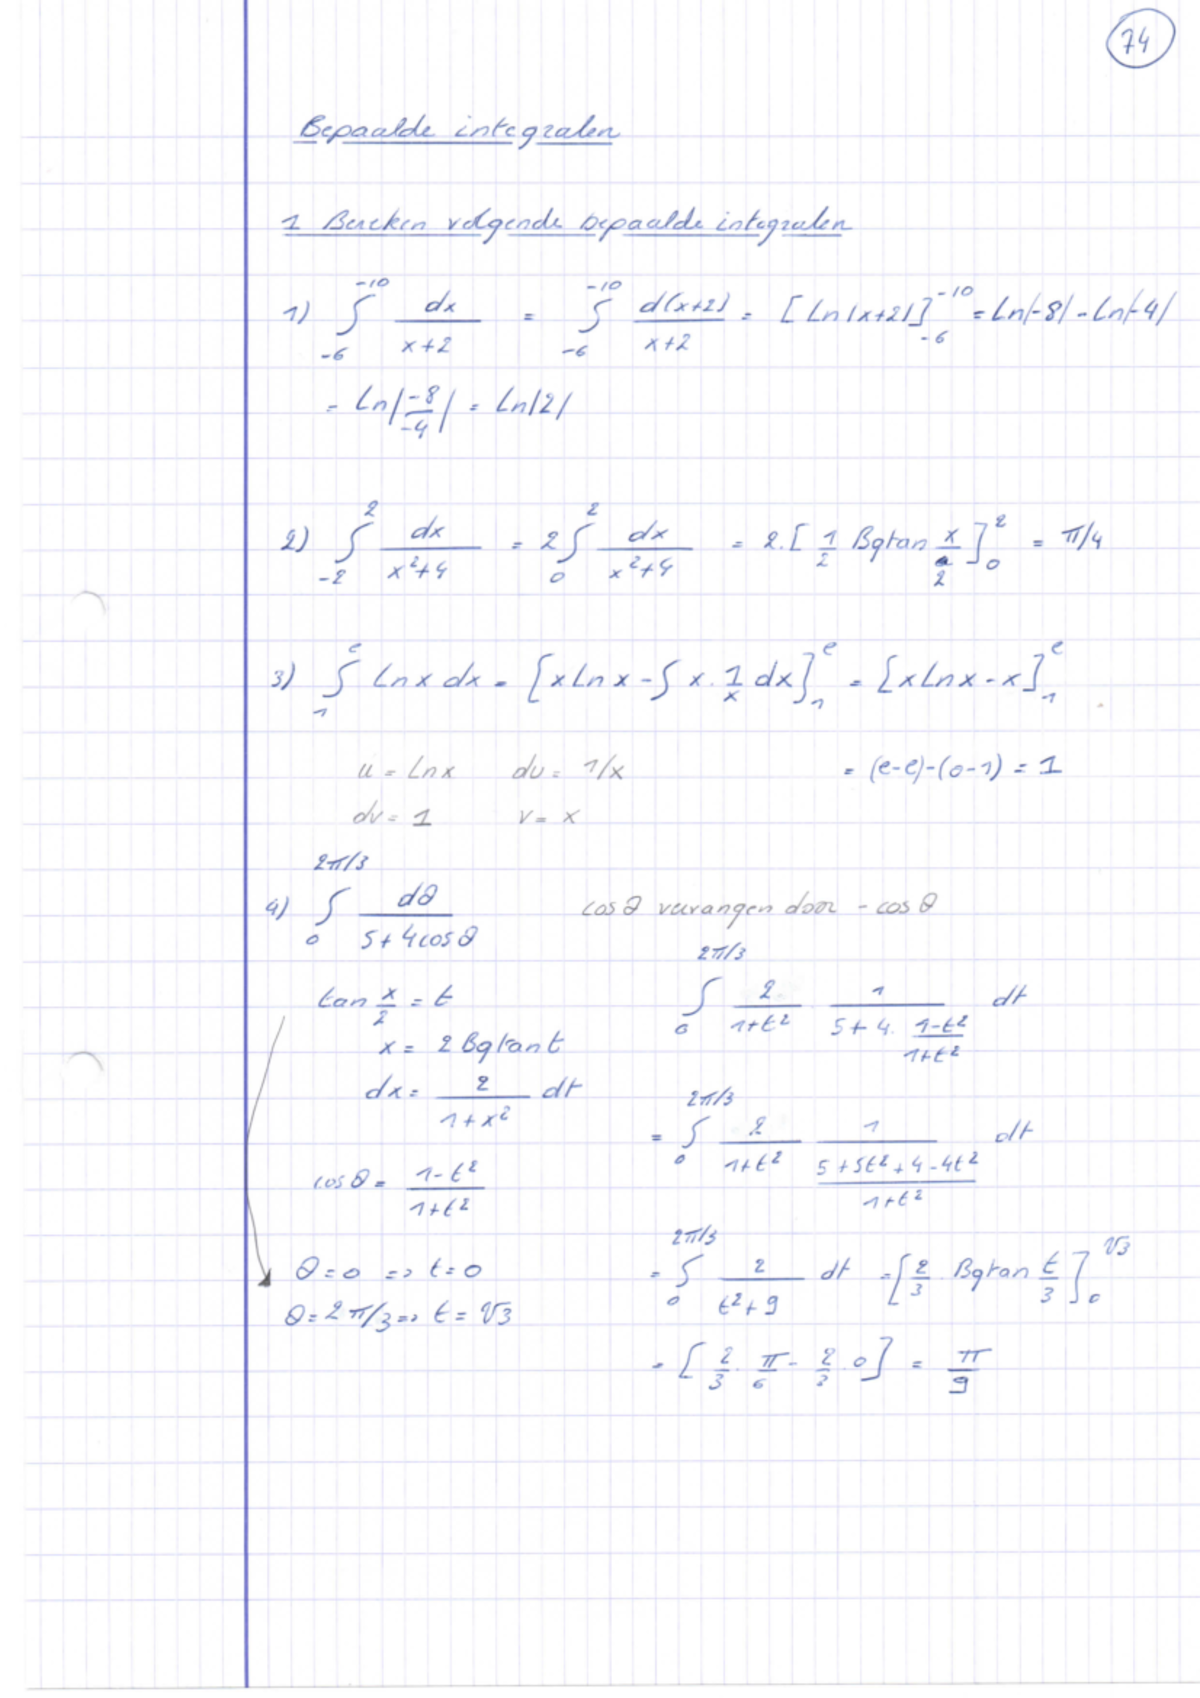 74
Bepaalde integralen
1 Bereken volgende bepaalde integralen
1) ∫_{-6}^{-10} dx/(x+2) = ∫_{-6}^{-10} d(x+2)/(x+2) = [Ln|x+2|]_{-6}^{-10} = Ln|-8| - Ln|-4|
= Ln|-8/-4| = Ln|2|
2) ∫_{-2}^{2} dx/(x²+4) = 2∫_{0}^{2} dx/(x²+4) = 2.[1/2 Bgtan x/2]_{0}^{2} = π/4
3) ∫_{1}^{e} Ln x dx = [x Ln x - ∫ x . 1/x dx]_{1}^{e} = [x Ln x - x]_{1}^{e}
u = Ln x du = 1/x = (e-e)-(0-1) = 1
dv = 1 v = x
4) ∫_{0}^{2π/3} dθ/(5+4cosθ) cosθ vervangen door - cosθ
tan x/2 = t ∫_{0}^{2π/3} 2/(1+t²) . 1/(5+4.(1-t²)/(1+t²)) dt
x = 2 Bgtan t
dx = 2/(1+x²) dt = ∫_{0}^{2π/3} 2/(1+t²) 1/((5+5t²+4-4t²)/(1+t²)) dt
cosθ = (1-t²)/(1+t²)
θ=0 => t=0 = ∫_{0}^{2π/3} 2/(t²+9) dt = [2/3 Bgtan t/3]_{0}^{√3}
θ=2π/3 => t=√3
= [2/3 . π/6 - 2/3 . 0] = π/9